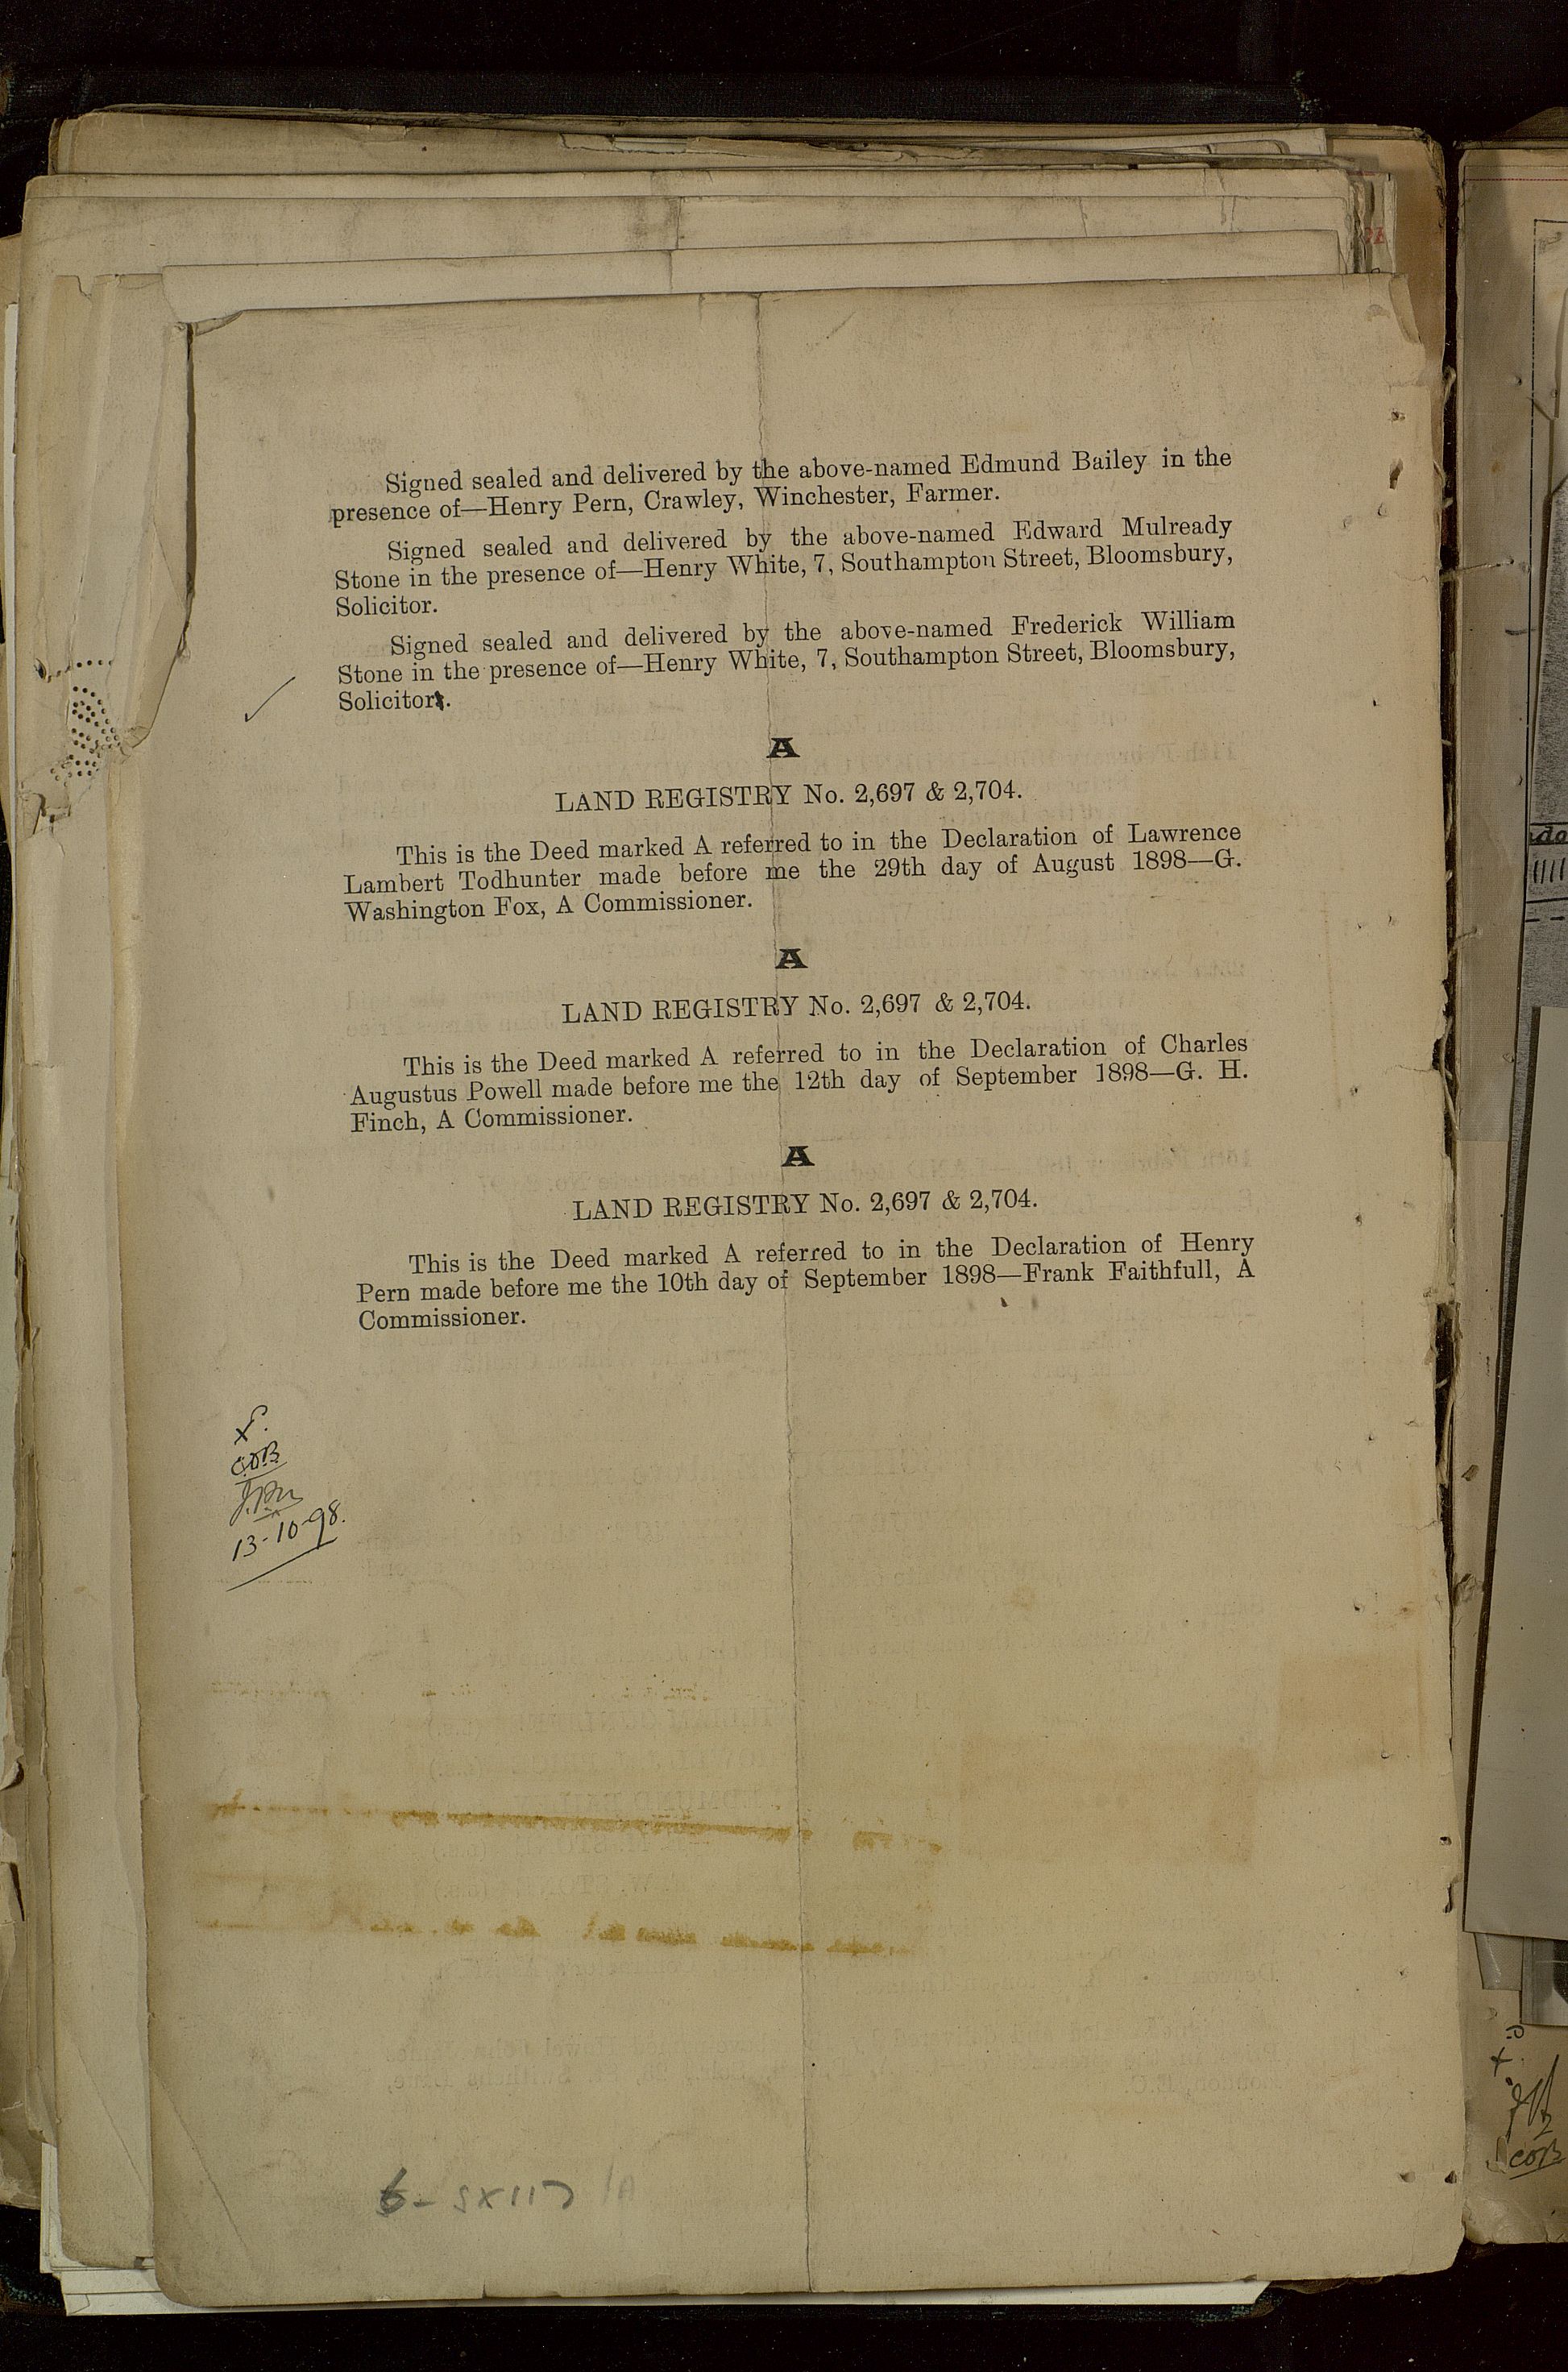 Signed sealed and delivered by the above-named Edmund Bailey in the
presence of—Henry Pern, Crawley, Winchester, Farmer.
Signed sealed and delivered by the above-named Edward Mulready
Stone in the presence of—Henry White, 7, Southampton Street, Bloomsbury,
Solicitor.
Signed sealed and delivered by the above-named Frederick William
Stone in the presence of—Henry White, 7, Southampton Street, Bloomsbury,
Solicitor.
A
LAND REGISTRY No. 2,697 & 2,704.
This is the Deed marked A referred to in the Declaration of Lawrence
Lambert Todhunter made before me the 29th day of August 1898—G.
Washington Fox, A Commissioner.
A
LAND REGISTRY No. 2,697 & 2,704.
This is the Deed marked A referred to in the Declaration of Charles
Augustus Powell made before me the 12th day of September 1898—G. H.
Finch, A Commissioner.
A
LAND REGISTRY No. 2,697 & 2,704.
This is the Deed marked A referred to in the Declaration of Henry
Pern made before me the 10th day of September 1898—Frank Faithfull, A
Commissioner.
13-10-98.